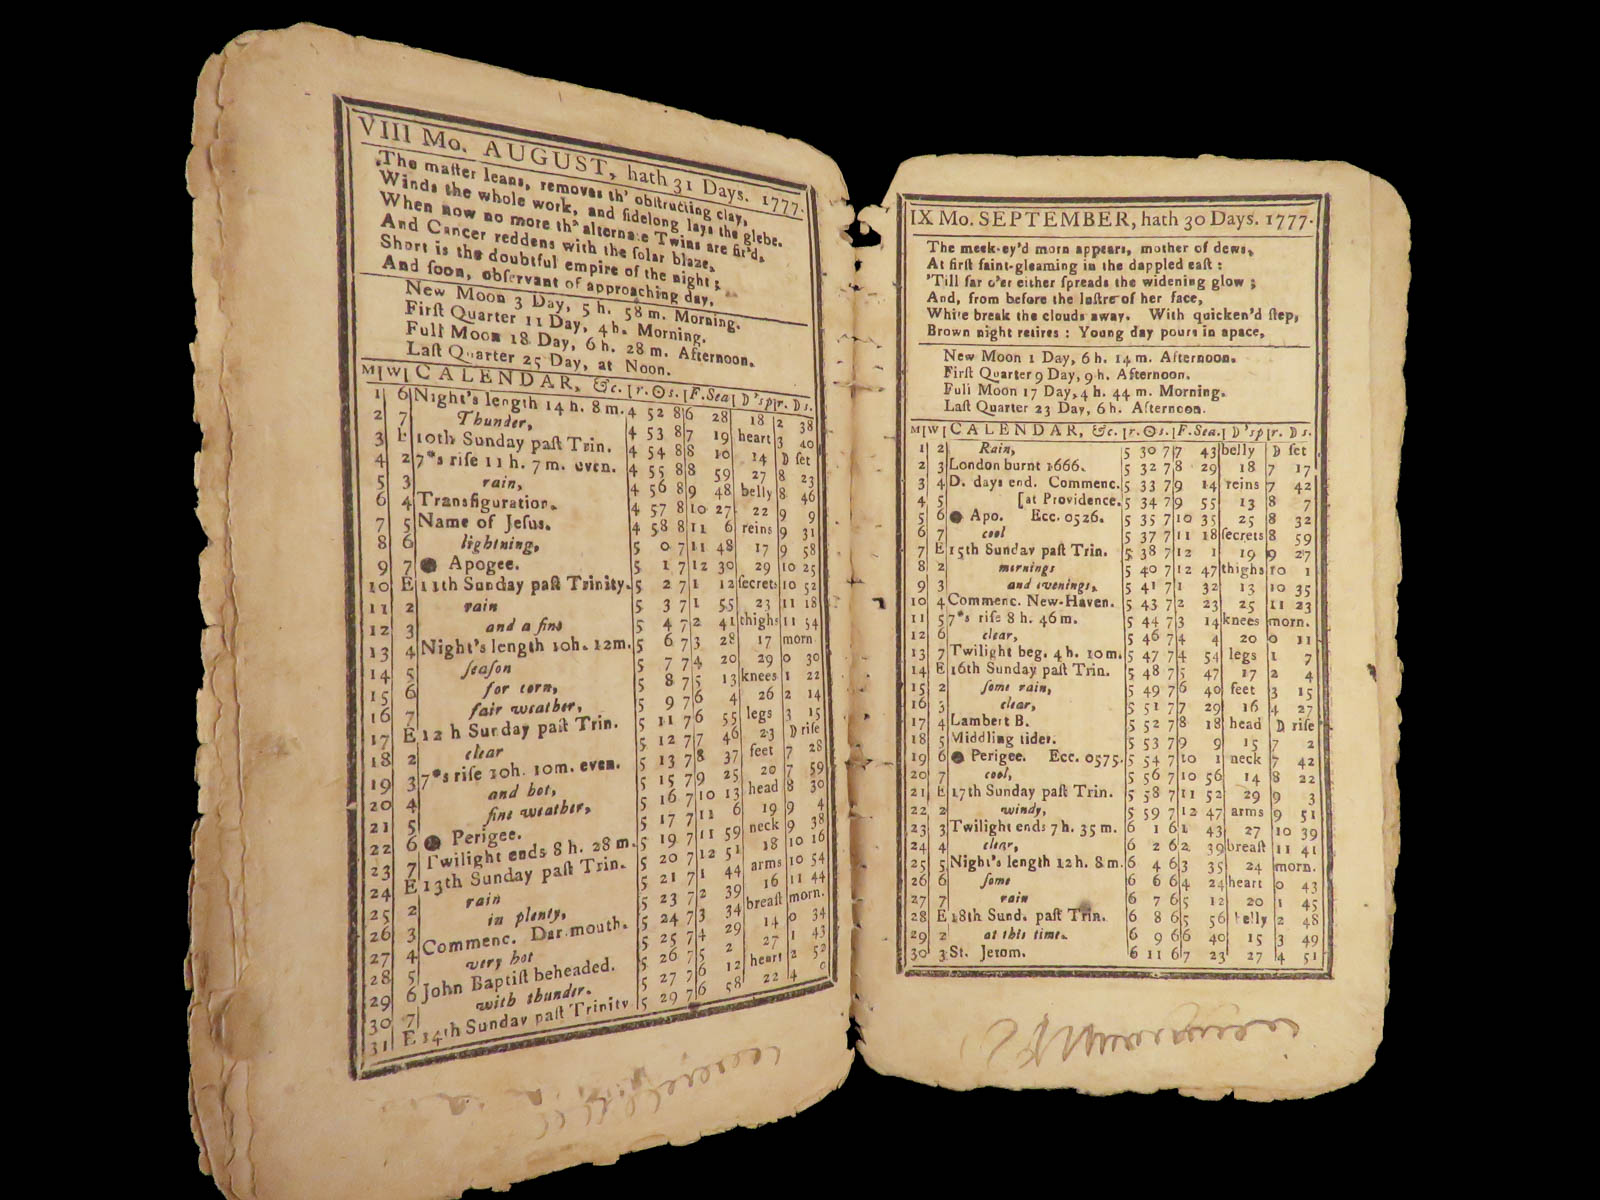 VIII Mo. AUGUST, hath 31 Days. 1777.
The maſter leans, removes th' obſtructing clay,
Winds the whole work, and ſidelong lays the glebe.
When now no more th' alternate Twins are fir'd,
And Cancer reddens with the ſolar blaze,
Short is the doubtful empire of the night;
And ſoon, obſervant of approaching day,
New Moon 3 Day, 5 h. 58 m. Morning.
Firſt Quarter 11 Day, 4 h. Morning.
Full Moon 18 Day, 6 h. 28 m. Afternoon.
Laſt Quarter 25 Day, at Noon.
M| W| CALENDAR, &c. |r. ☉ s. |F. Sea| ☽'s p|r. ☽ s.
1 6 Night's length 14 h. 8 m. 4 52 8 6 28 18 2 38
2 7 Thunder, 4 53 8 7 19 heart 3 40
3 E 10th Sunday paſt Trin. 4 54 8 8 10 14 ☽ ſet
4 2 7*s riſe 11 h. 7 m. even. 4 55 8 8 59 27 8 23
5 3 rain, 4 56 8 9 48 belly 8 46
6 4 Transfiguration. 4 57 8 10 27 22 9 9
7 5 Name of Jeſus. 4 58 8 11 6 reins 9 31
8 6 lightning, 5 0 7 11 48 17 9 58
9 7 ● Apogee. 5 1 7 12 30 29 10 25
10 E 11th Sunday paſt Trinity. 5 2 7 1 12 ſecrets 10 52
11 2 rain 5 3 7 1 55 23 11 18
12 3 and a fine 5 4 7 2 41 thighs 11 54
13 4 Night's length 10h. 12m. 5 6 7 3 28 17 morn
14 5 ſeaſon 5 7 7 4 20 29 0 30
15 6 for corn, 5 8 7 5 13 knees 1 22
16 7 fair weather, 5 9 7 6 4 26 2 14
17 E 12 h Sunday paſt Trin. 5 11 7 6 55 legs 3 15
18 2 clear 5 12 7 7 46 23 ☽ riſe
19 3 7*s riſe 10h. 10m. even. 5 13 7 8 37 feet 7 28
20 4 and hot, 5 15 7 9 25 20 7 59
21 5 fine weather, 5 16 7 10 13 head 8 30
22 6 ● Perigee. 5 17 7 11 6 19 9 4
23 7 Twilight ends 8 h. 28 m. 5 19 7 11 59 neck 9 38
24 E 13th Sunday paſt Trin. 5 20 7 12 51 18 10 16
25 2 rain 5 21 7 1 44 arms 10 54
26 3 in plenty, 5 23 7 2 39 16 11 44
27 4 Commenc. Dar.mouth. 5 24 7 3 34 breaſt morn.
28 5 very hot 5 25 7 4 29 14 0 34
29 6 John Baptiſt beheaded. 5 26 7 5 2 27 1 43
30 7 with thunder. 5 27 7 6 12 heart 2 52
31 E 14th Sunday paſt Trinity 5 29 7 6 58 22 4 0
IX Mo. SEPTEMBER, hath 30 Days. 1777.
The meek-ey'd morn appears, mother of dews,
At firſt faint-gleaming in the dappled eaſt:
'Till far o'er either ſpreads the widening glow;
And, from before the luſtre of her face,
White break the clouds away. With quicken'd ſtep,
Brown night retires: Young day pours in apace,
New Moon 1 Day, 6 h. 14 m. Afternoon.
Firſt Quarter 9 Day, 9 h. Afternoon.
Full Moon 17 Day, 4 h. 44 m. Morning.
Laſt Quarter 23 Day, 6 h. Afternoon.
M| W| CALENDAR, &c. |r. ☉ s. |F. Sea.| ☽'s p|r. ☽ s.
1 2 Rain, 5 30 7 7 43 belly ☽ ſet
2 3 London burnt 1666. 5 32 7 8 29 18 7 17
3 4 D. days end. Commenc. 5 33 7 9 14 reins 7 42
4 5 [at Providence. 5 34 7 9 55 13 8 7
5 6 ● Apo. Ecc. 0526. 5 35 7 10 35 25 8 32
6 7 cool 5 37 7 11 18 ſecrets 8 59
7 E 15th Sunday paſt Trin. 5 38 7 12 1 19 9 27
8 2 mornings 5 40 7 12 47 thighs 10 1
9 3 and evenings, 5 41 7 1 32 13 10 35
10 4 Commenc. New-Haven. 5 43 7 2 23 25 11 23
11 5 7*s riſe 8 h. 46 m. 5 44 7 3 14 knees morn.
12 6 clear, 5 46 7 4 4 20 0 11
13 7 Twilight beg. 4 h. 10 m. 5 47 7 4 54 legs 1 7
14 E 16th Sunday paſt Trin. 5 48 7 5 47 17 2 4
15 2 ſome rain, 5 49 7 6 40 feet 3 15
16 3 clear, 5 51 7 7 29 16 4 27
17 4 Lambert B. 5 52 7 8 18 head ☽ riſe
18 5 Middling tides. 5 53 7 9 9 15 7 2
19 6 ● Perigee. Ecc. 0575. 5 54 7 10 1 neck 7 42
20 7 cool, 5 56 7 10 56 14 8 22
21 E 17th Sunday paſt Trin. 5 58 7 11 52 29 9 3
22 2 windy, 5 59 7 12 47 arms 9 51
23 3 Twilight ends 7 h. 35 m. 6 1 6 1 43 27 10 39
24 4 clear, 6 2 6 2 39 breaſt 11 41
25 5 Night's length 12 h. 8 m. 6 4 6 3 35 24 morn.
26 6 ſome 6 6 6 4 24 heart 0 43
27 7 rain 6 7 6 5 12 20 1 45
28 E 18th Sund. paſt Trin. 6 8 6 5 56 belly 2 48
29 2 at this time. 6 9 6 6 40 15 3 49
30 3 St. Jerom. 6 11 6 7 23 27 4 51